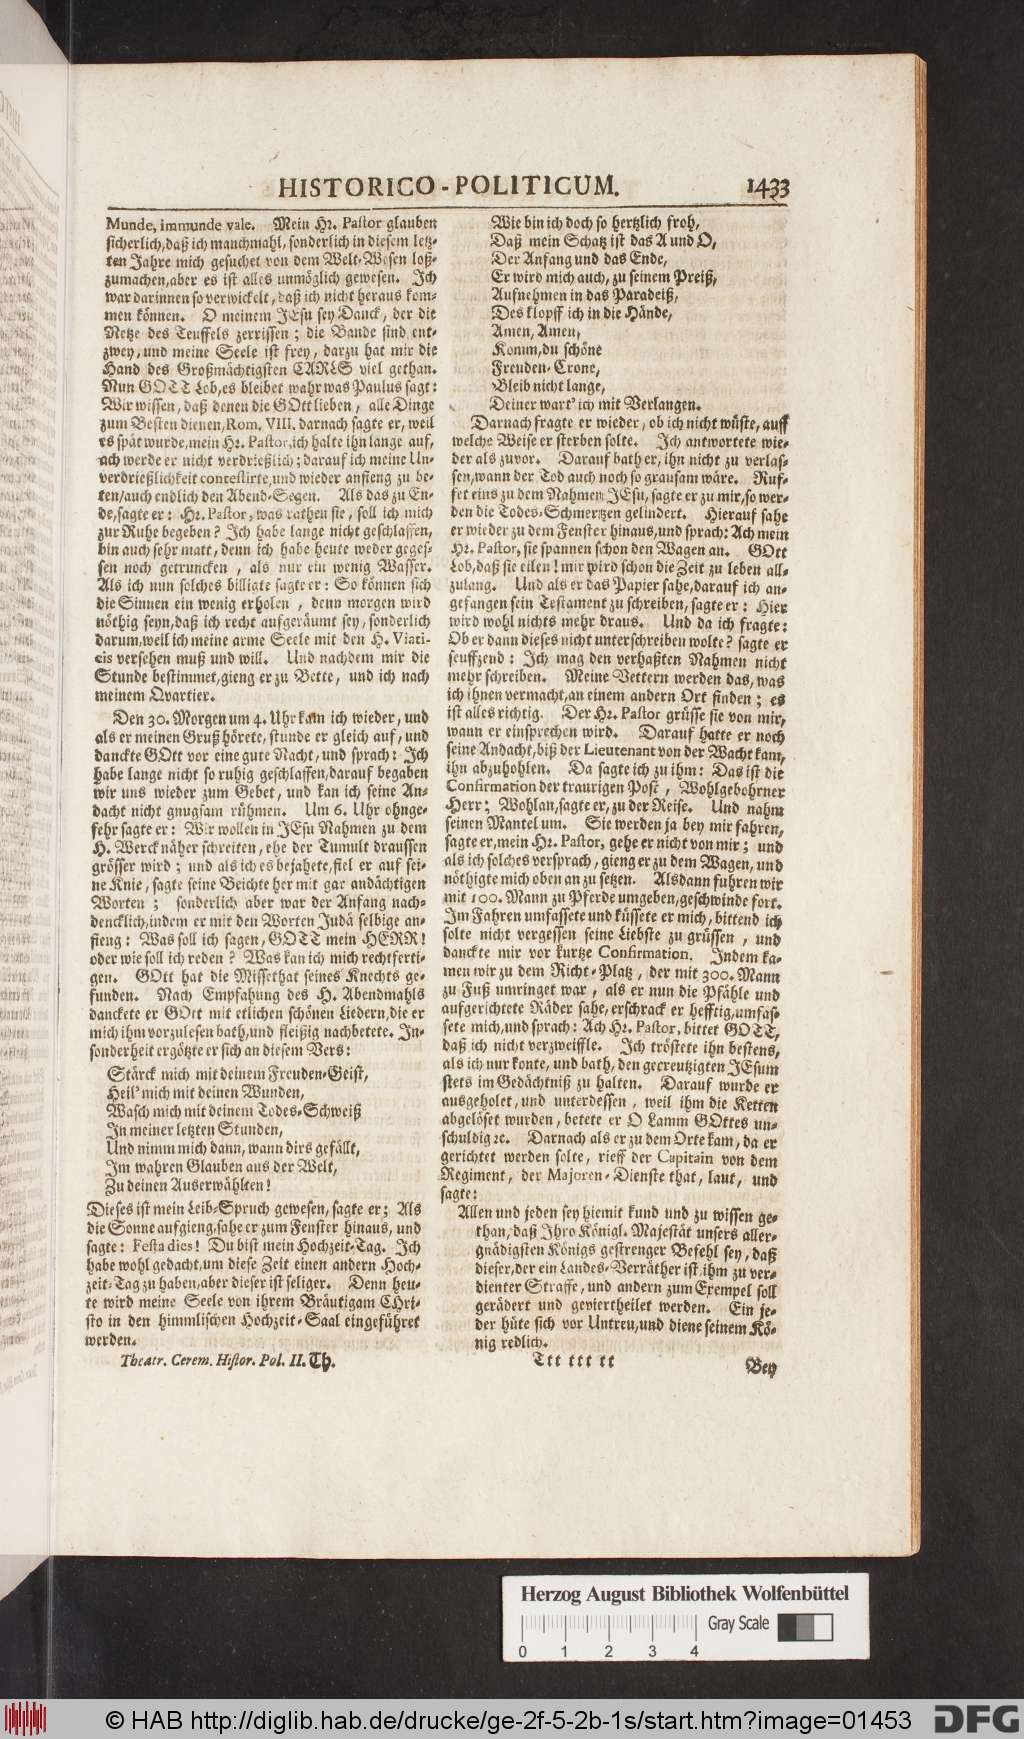 HISTORICO-POLITICUM. 1433
Munde, immunde vale. Mein Hr. Pastor glauben
sicherlich, daß ich manchmahl, sonderlich in diesem letz-
ten Jahre mich gesuchet von dem Welt-Wesen loß-
zumachen, aber es ist alles unmöglich gewesen. Ich
war darinnen so verwickelt, daß ich nicht heraus kom-
men können. O meinem JEsu sey Danck, der die
Netze des Teuffels zerrissen; die Bande sind ent-
zwey, und meine Seele ist frey, darzu hat mir die
Hand des Großmächtigsten CARLS viel gethan.
Nun GOTT Lob, es bleibet wahr was Paulus sagt:
Wir wissen, daß denen die GOtt lieben, alle Dinge
zum Besten dienen, Rom. VIII. darnach sagte er, weil
es spät wurde, mein Hr. Pastor, ich halte ihn lange auf,
ach werde er nicht verdrießlich; darauf ich meine Un-
verdrießlichkeit contestirte, und wieder anfieng zu be-
ten/auch endlich den Abend-Segen. Als das zu En-
de, sagte er: Hr. Pastor, was rathen sie, soll ich mich
zur Ruhe begeben? Ich habe lange nicht geschlaffen,
bin auch sehr matt, denn ich habe heute weder geges-
sen noch getruncken, als nur ein wenig Wasser.
Als ich nun solches billigte sagte er: So können sich
die Sinnen ein wenig erholen, denn morgen wird
nöthig seyn, daß ich recht aufgeräumt sey, sonderlich
darum, weil ich meine arme Seele mit den H. Viati-
cis versehen muß und will. Und nachdem mir die
Stunde bestimmet, gieng er zu Bette, und ich nach
meinem Qvartier.
Den 30. Morgen um 4. Uhr kam ich wieder, und
als er meinen Gruß hörete, stunde er gleich auf, und
danckte GOtt vor eine gute Nacht, und sprach: Ich
habe lange nicht so ruhig geschlaffen, darauf begaben
wir uns wieder zum Gebet, und kan ich seine An-
dacht nicht gnugsam rühmen. Um 6. Uhr ohnge-
fehr sagte er: Wir wollen in JEsu Nahmen zu dem
H. Werck näher schreiten, ehe der Tumult draussen
grösser wird; und als ich es bejahete, fiel er auf sei-
ne Knie, sagte seine Beichte her mit gar andächtigen
Worten; sonderlich aber war der Anfang nach-
dencklich, indem er mit den Worten Judä selbige an-
fieng: Was soll ich sagen, GOTT mein HERR!
oder wie soll ich reden? Was kan ich mich rechtferti-
gen. GOtt hat die Missethat seines Knechts ge-
funden. Nach Empfahung des H. Abendmahls
danckete er GOtt mit etlichen schönen Liedern, die er
mich ihm vorzulesen bath, und fleißig nachbetete. In-
sonderheit ergötzte er sich an diesem Vers:
Stärck mich mit deinem Freuden-Geist,
Heil' mich mit deinen Wunden,
Wasch mich mit deinem Todes-Schweiß
In meiner letzten Stunden,
Und nimm mich dann, wann dirs gefällt,
Im wahren Glauben aus der Welt,
Zu deinen Auserwählten!
Dieses ist mein Leib-Spruch gewesen, sagte er; Als
die Sonne aufgieng, sahe er zum Fenster hinaus, und
sagte: Festa dies! Du bist mein Hochzeit-Tag. Ich
habe wohl gedacht, um diese Zeit einen andern Hoch-
zeit-Tag zu haben, aber dieser ist seliger. Denn heu-
te wird meine Seele von ihrem Bräutigam CHri-
sto in den himmlischen Hochzeit-Saal eingeführet
werden.
Theatr. Cerem. Histor. Pol. II. Th.
Wie bin ich doch so hertzlich froh,
Daß mein Schatz ist das A und O,
Der Anfang und das Ende,
Er wird mich auch, zu seinem Preiß,
Aufnehmen in das Paradeiß,
Des klopff ich in die Hände,
Amen, Amen,
Komm, du schöne
Freuden-Crone,
Bleib nicht lange,
Deiner wart' ich mit Verlangen.
Darnach fragte er wieder, ob ich nicht wüste, auff
welche Weise er sterben solte. Ich antwortete wie-
der als zuvor. Darauf bath er, ihn nicht zu verlas-
sen, wann der Tod auch noch so grausam wäre. Ruf-
fet eins zu dem Nahmen JEsu, sagte er zu mir, so wer-
den die Todes-Schmertzen gelindert. Hierauf sahe
er wieder zu dem Fenster hinaus, und sprach: Ach mein
Hr. Pastor, sie spannen schon den Wagen an. GOtt
Lob, daß sie eilen! mir wird schon die Zeit zu leben all-
zulang. Und als er das Papier sahe, darauf ich an-
gefangen sein Testament zu schreiben, sagte er: Hier
wird wohl nichts mehr draus. Und da ich fragte:
Ob er dann dieses nicht unterschreiben wolte? sagte er
seuffzend: Ich mag den verhaßten Nahmen nicht
mehr schreiben. Meine Vettern werden das, was
ich ihnen vermacht, an einem andern Ort finden; es
ist alles richtig. Der Hr. Pastor grüsse sie von mir,
wann er einsprechen wird. Darauf hatte er noch
seine Andacht, biß der Lieutenant von der Wacht kam,
ihn abzuhohlen. Da sagte ich zu ihm: Das ist die
Confirmation der traurigen Post, Wohlgebohrner
Herr; Wohlan, sagte er, zu der Reise. Und nahm
seinen Mantel um. Sie werden ja bey mir fahren,
sagte er, mein Hr. Pastor, gehe er nicht von mir; und
als ich solches versprach, gieng er zu dem Wagen, und
nöthigte mich oben an zu setzen. Alsdann fuhren wir
mit 100. Mann zu Pferde umgeben, geschwinde fort.
Im Fahren umfassete und küssete er mich, bittend ich
solte nicht vergessen seine Liebste zu grüssen, und
danckte mir vor kurtze Confirmation. Indem ka-
men wir zu dem Richt-Platz, der mit 300. Mann
zu Fuß umringet war, als er nun die Pfähle und
aufgerichtete Räder sahe, erschrack er hefftig, umfas-
sete mich, und sprach: Ach Hr. Pastor, bittet GOTT,
daß ich nicht verzweiffle. Ich tröstete ihn bestens,
als ich nur konte, und bath, den gecreutzigten JEsum
stets im Gedächtniß zu halten. Darauf wurde er
ausgeholet, und unterdessen, weil ihm die Ketten
abgelöset wurden, betete er O Lamm GOttes un-
schuldig ꝛc. Darnach als er zu dem Orte kam, da er
gerichtet werden solte, rieff der Capitain von dem
Regiment, der Majoren-Dienste that, laut, und
sagte:
Allen und jeden sey hiemit kund und zu wissen ge-
than, daß Ihro Königl. Majestät unsers aller-
gnädigsten Königs gestrenger Befehl sey, daß
dieser, der ein Landes-Verräther ist, ihm zu ver-
dienter Straffe, und andern zum Exempel soll
gerädert und geviertheilet werden. Ein je-
der hüte sich vor Untreu, und diene seinem Kö-
nig redlich.
Ttt ttt tt Bey
Herzog August Bibliothek Wolfenbüttel
Gray Scale
0 1 2 3 4
© HAB http://diglib.hab.de/drucke/ge-2f-5-2b-1s/start.htm?image=01453
DFG